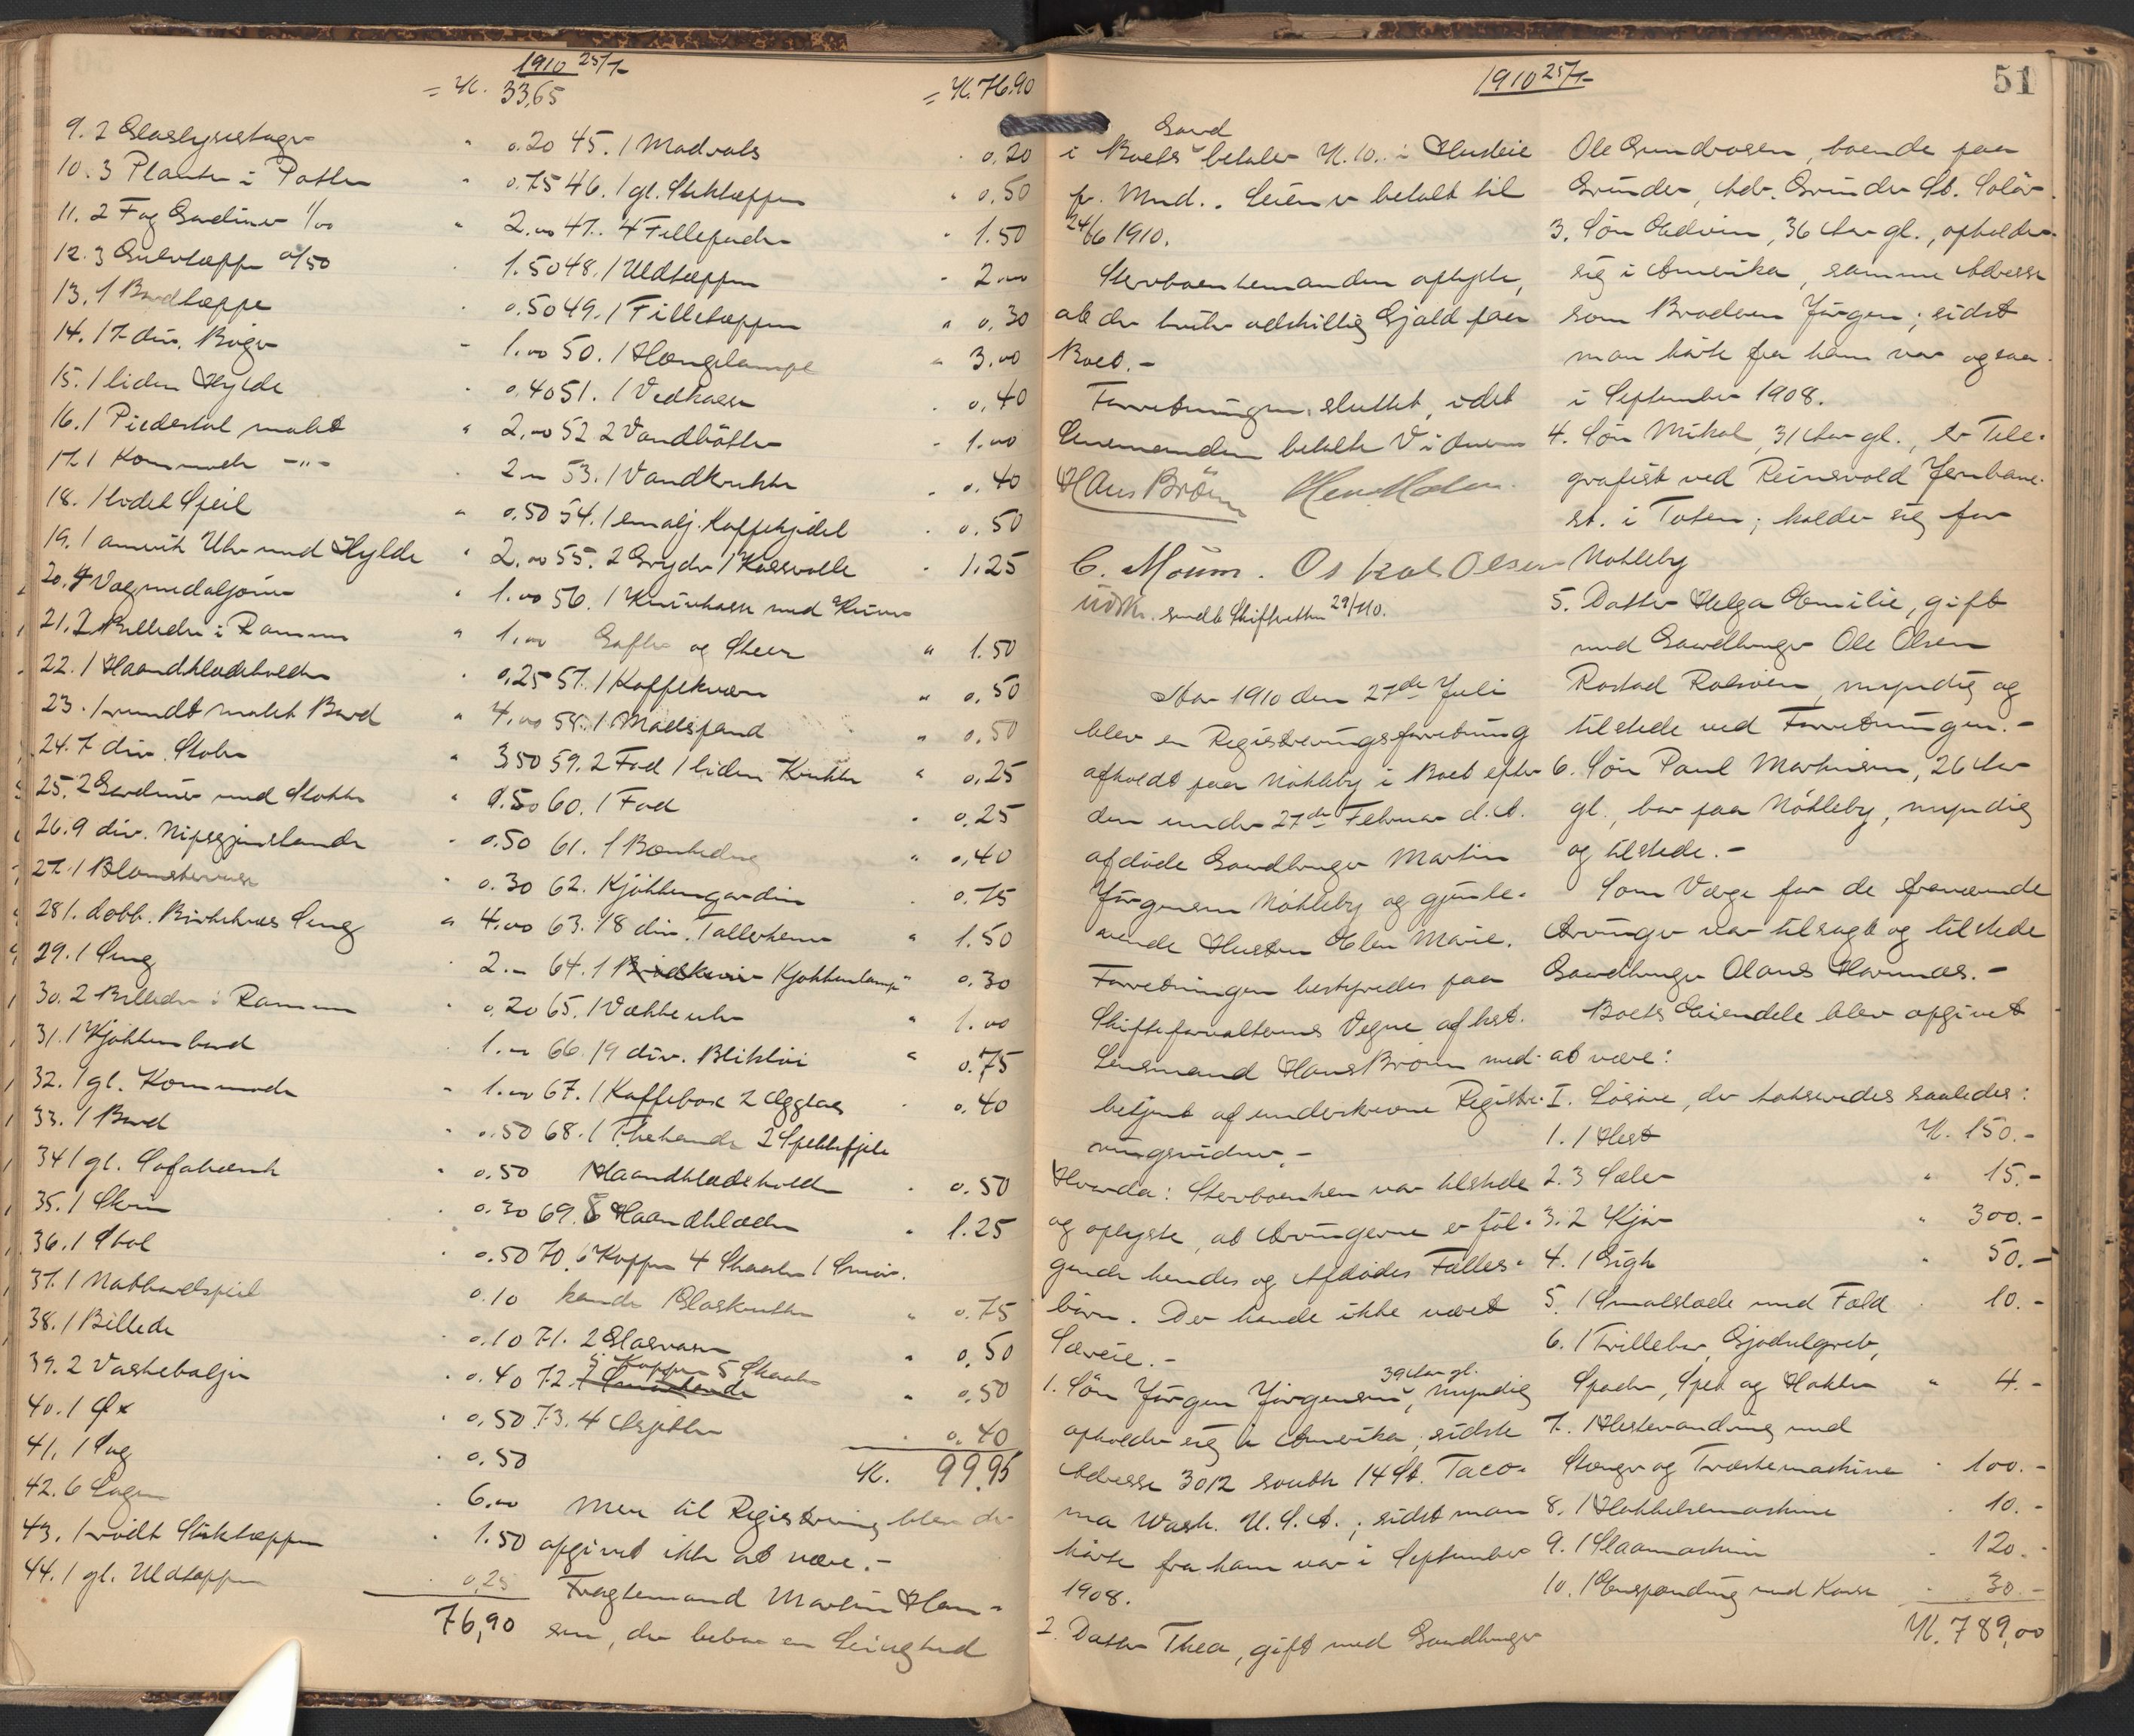 1910 25/7
= K. 33,65
9. 2 Glaslysestager " 0.20
10. 3 Planter i Potter " 0.75
11. 2 Fag Gardiner 1/00 " 2.00
12. 3 Gulvtæpper a/50 " 1.50
13. 1 Bordtæppe " 0.50
14. 17 div. Bøger " 1.00
15. 1 liden Hylde " 0.40
16. 1 Piedestal malet " 2.00
17. 1 Kommode -"- " 2.-
18. 1 lidet Speil " 0.50
19. 1 amerik Uhr med Hylde " 2.00
20. 4 Vægmedaljoner " 1.00
21. 2 Billeder i Ramme " 1.00
22. 1 Haandklædeholder " 0.25
23. 1 rundt malet Bord " 4.00
24. 7 div. Stoler " 3.50
25. 2 Gardiner med Stokker " 0.50
26. 9 div. Nipsgjenstande " 0.50
27. 1 Blomstervase " 0.30
28 1. dobb. Birketræs Seng " 4.00
29. 1 Seng " 2.-
30. 2 Billeder i Ramme " 0.20
31. 1 Kjøkkenbord " 1.-
32. 1 gl. Kommode " 1.00
33. 1 Bord " 0.50
34 1 gl. Sofabænk " 0.50
35. 1 Skrin " 0.30
36. 1 Stol " 0.50
37. 1 Natbordspeil 0.10
38. 1 Billede " 0.10
39. 2 Vaskebaljer " 0.40
40. 1 Øx " 0.50
41. 1 Sag " 0.50
42. 6 Lagen " 6.00
43. 1 rødt Stiktæppe " 1.50
44. 1 gl. Uldtæppe " 0.25
76,90
= K. 76.90
45. 1 Madvals " 0.20
46. 1 gl. Stiktæppe " 0.50
47. 4 Fillepuder " 1.50
48. 1 Uldtæppe " 2.00
49. 1 Filletæppe " 0.30
50. 1 Hængelampe " 3.00
51. 1 Vedkasse " 0.40
52 2 Vandbøtter " 1.00
53. 1 Vandkrukke " 0.40
54. 1 emalj. Kaffekjedel " 0.50
55. 2 Gryder 1 Kasserolle " 1.25
56. 1 Knivkasse med Kniver
Gafler og Skeer " 1.50
57. 1 Kaffekværn " 0.50
58. 1 Madspand " 0.50
59. 2 Fad 1 liden Krukke " 0.25
60. 1 Fad " 0.25
61. 1 Bænkedug " 0.40
62. Kjøkkengardin " 0.75
63. 18 div. Tallerkener " 1.50
64. 1 Kjøkkenlampe " 0.30
65. 1 Vækkeuhr " 1.00
66. 19 div. Bliktøi " 0.75
67. 1 Kaffebox 2 Ægglas " 0.40
68. 1 Thekande 2 Spekkefjele
1 Haandklædeholder " 0.50
69. 8 Haandklæder " 1.25
70. 6 Kopper 4 Skaaler 1 Smør-
kande 1 Glaskrukke " 0.75
71. 2 Glasvaser " 0.50
5 Kopper 5 Skaaler
72. 1 Smørkande " 0.50
73. 4 Asjetter " 0.40
K. 99.95
Mer til Registrering blev der
opgivet ikke at være.-
Fragtemand Martin Han-
sen, der bebor en Leilighed
1910 25/7
51
Gaard
i Boets betaler K. 10.- i Husleie
pr. Mnd.. Leien er betalt til
24/6 1910.
Stervboenkemanden oplyste,
at der hviler adskillig Gjæld paa
Boet.-
Forretningen sluttet, idet
Lensmanden betalte Vidnerne
Hans Brøm
C. Moum. Oskar Olsen
Udskr. sendt Skifteretten 29/7 10.
Aar 1910 den 27de Juli
blev en Registreringsforretning
afholdt paa Nøkleby i Boet efter
den under 27de Februar d. A.
afdøde Gaardbruger Martin
Jørgensen Nøkleby og gjenle-
vende Hustru Elen Marie.
Forretningen bestyredes paa
Skifteforvalterens Vegne af kst.
Lensmand Hans Brøm med-
betjent af underskrevne Registre-
ringsvidner.-
Hvorda: Stervboenken var tilstede
og oplyste, at Arvingerne er føl-
gende hendes og Afdødes Fælles-
børn. Der havde ikke været
Særeie.-
39 Aar gl.
1. Søn Jørgen Jørgensen, myndig
opholder sig i Amerika, sidste
Adresse 3012 south 14 St. Taco-
ma Wash. U. S. A.; sidst man
hørte fra ham var i September
1908.
2. Datter Thea, gift med Gaardbruger
Ole Gundrosen, boende paa
Grinder, Adr. Grinder St. Solør.
3. Søn Edvin, 36 Aar gl., opholder
sig i Amerika, samme Adresse
som Broderen Jørgen; sidst
man hørte fra ham var ogsaa
i September 1908.
4. Søn Mikal, 31 Aar gl., er Tele-
grafist ved Reinsvold Jernbane-
st. i Toten; holder sig for
Nøkleby
5. Datter Helga Emilie, gift
med Gaardbruger Ole Olsen
Rostad Rolsøien, myndig og
tilstede ved Forretningen.-
6. Søn Paul Martinsen, 26 Aar
gl., bor paa Nøkleby, myndig
og tilstede.-
Som Værge for de fraværende
Arvinger var tilsagt og tilstede
Gaardbruger Olaus Havnaas.-
Boets Eiendele blev opgivet
at være:
I. Løsøre, der taxeredes saaledes:
1. 1 Hest K. 150.-
2. 3 Sæler " 15.-
3. 2 Kjør " 300.-
4. 1 Gigh " 50.-
5. 1 Smalslæde med Fæld " 10.-
6. 1 Trillebør, Gjødselgreb,
Spader, Spet og Hakker " 4.-
7. 1 Hestevandring med
Stænger og Træskemaskine " 100.-
8. 1 Hakkelsemaskine " 10.-
9. 1 Slaamaskin " 120.-
10. 1 Enspænding med Karm " 30.-
K. 789,00